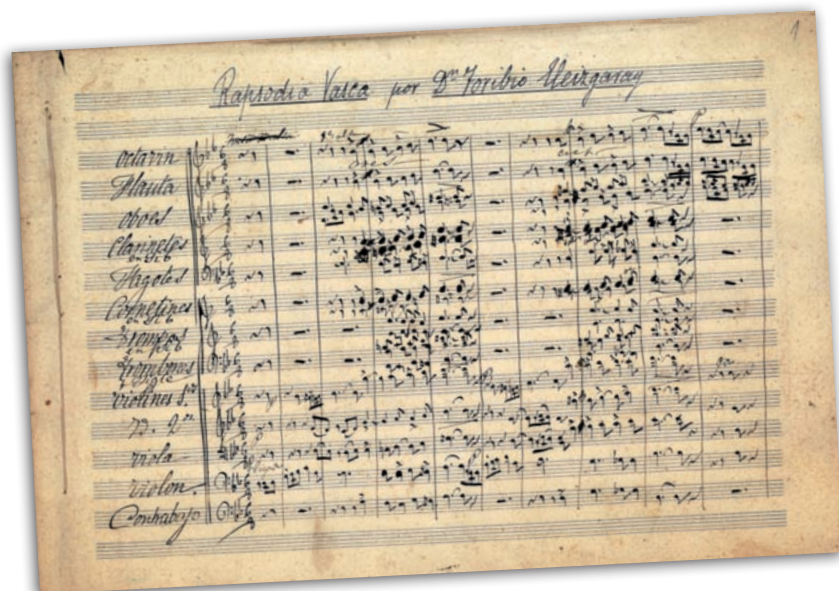 1
Rapsodia Vasca por Dn Toribio Eleizgaray
octavin
Flauta
oboes
Clarinetes
Fagotes
Cornetines
Trompas
Trombones
violines 1os
ID. 2os
viola
violon
Contrabajo